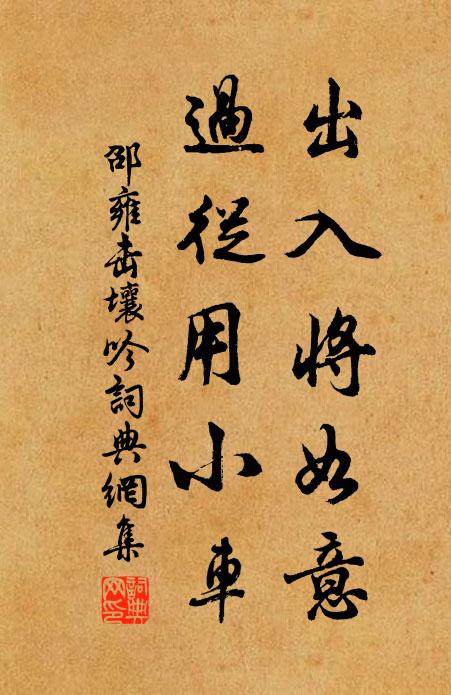 出入將如意
過從用小車
邵雍击壤吟詞典網集
詞典网印